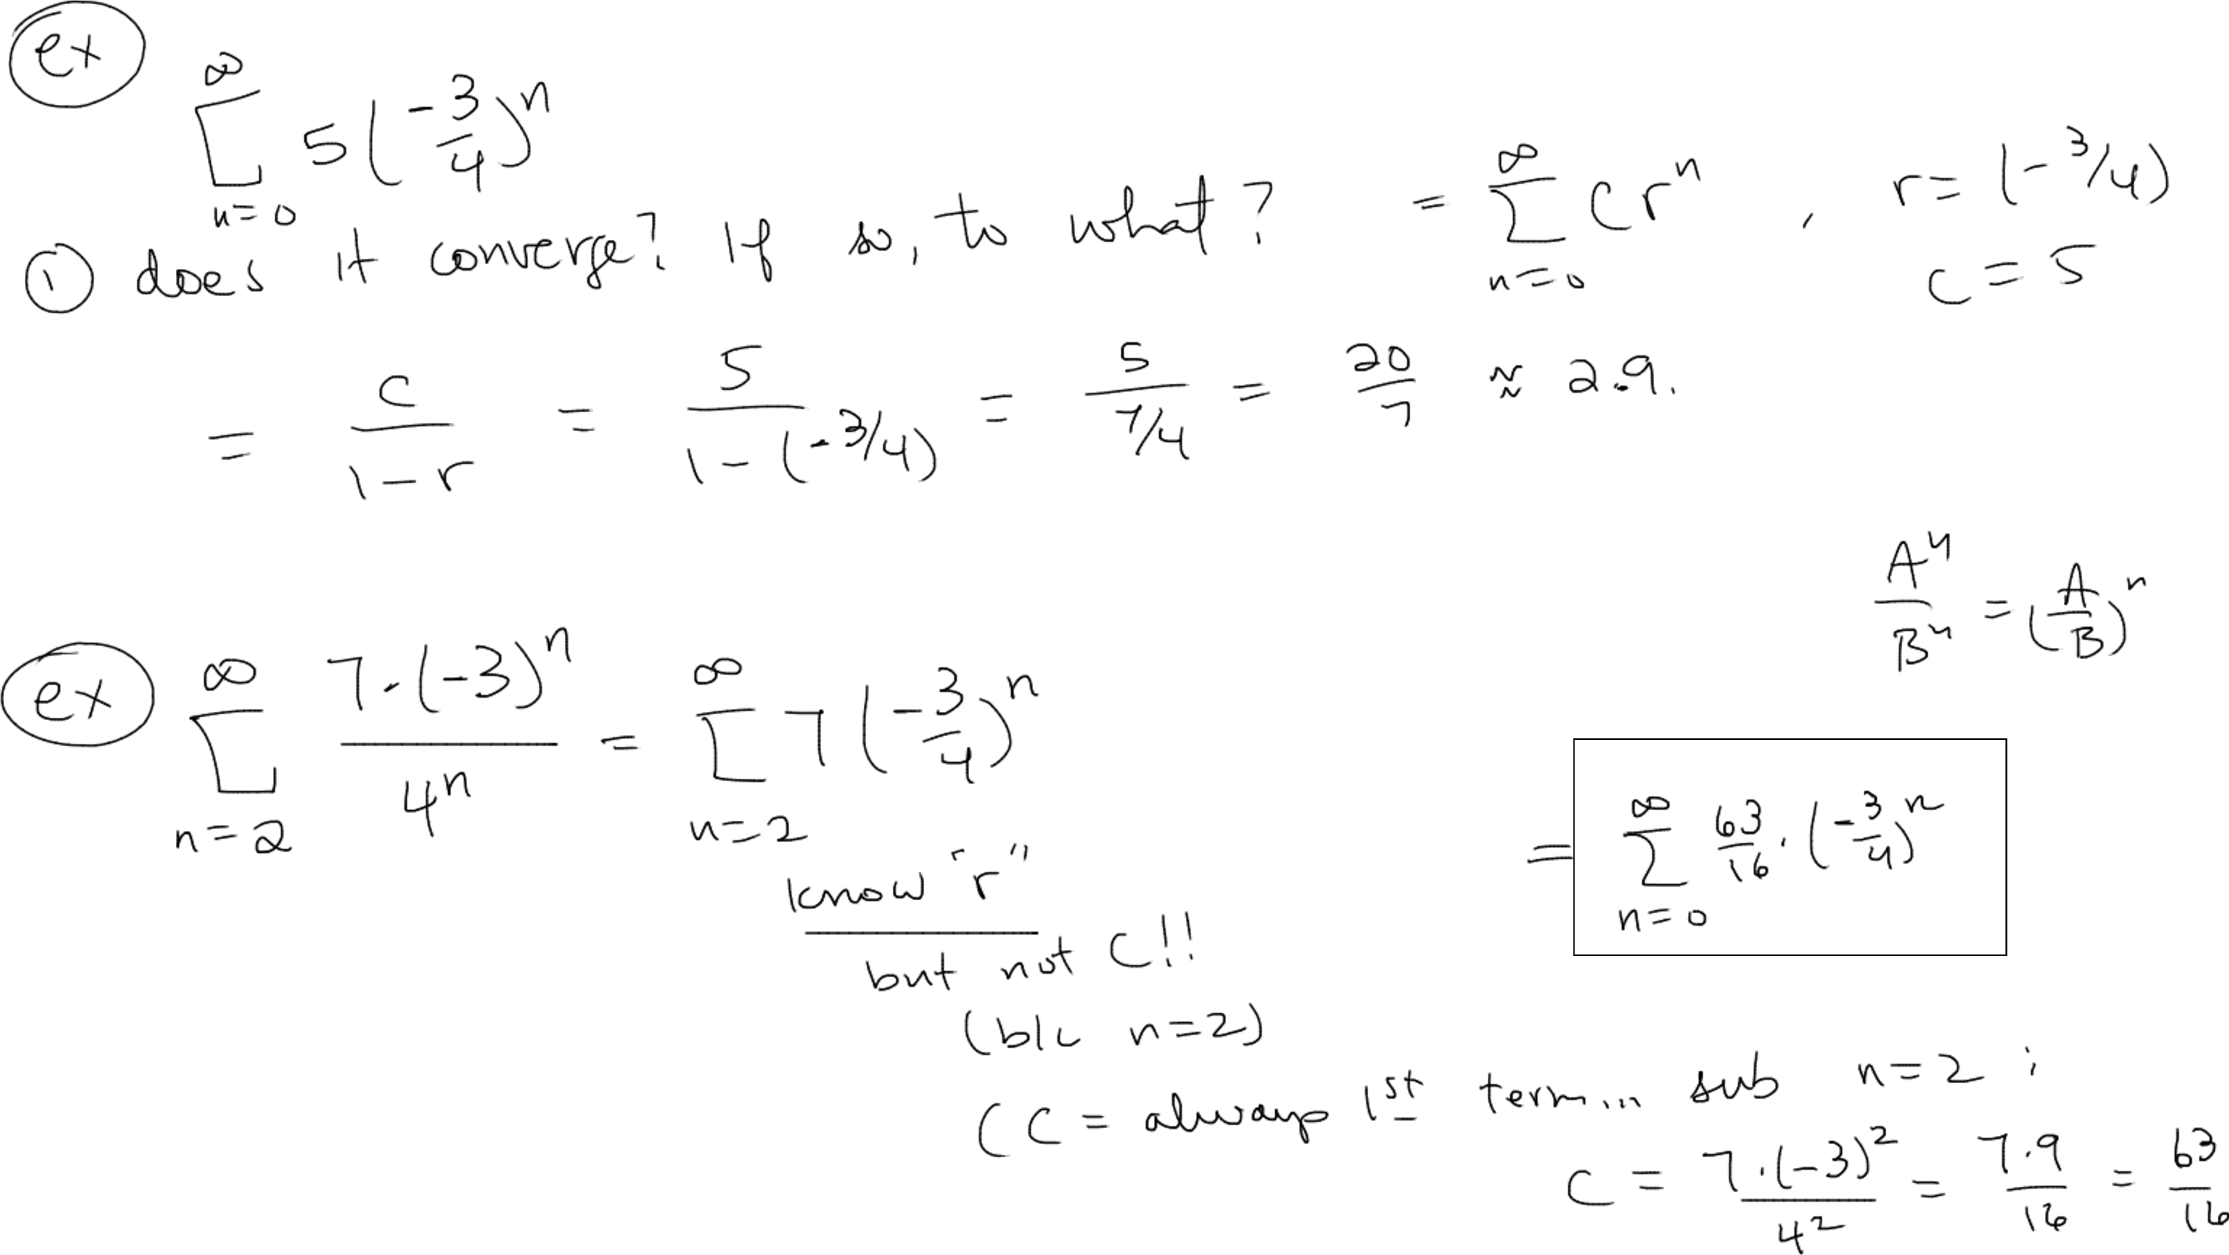 ex
∞ Σ n=0 5(-3/4)^n
① does it converge? If so, to what? = ∞ Σ n=0 cr^n , r = (-3/4)
c = 5
= c/(1-r) = 5/(1-(-3/4)) = 5/(7/4) = 20/7 ≈ 2.9.
A^n/B^n = (A/B)^n
ex ∞ Σ n=2 7·(-3)^n/4^n = ∞ Σ n=2 7(-3/4)^n
= ∞ Σ n=0 63/16 · (-3/4)^n
know "r"
but not C!!
(b/c n=2)
(C = always 1st term... sub n=2 :
C = 7·(-3)^2/4^2 = 7·9/16 = 63/16